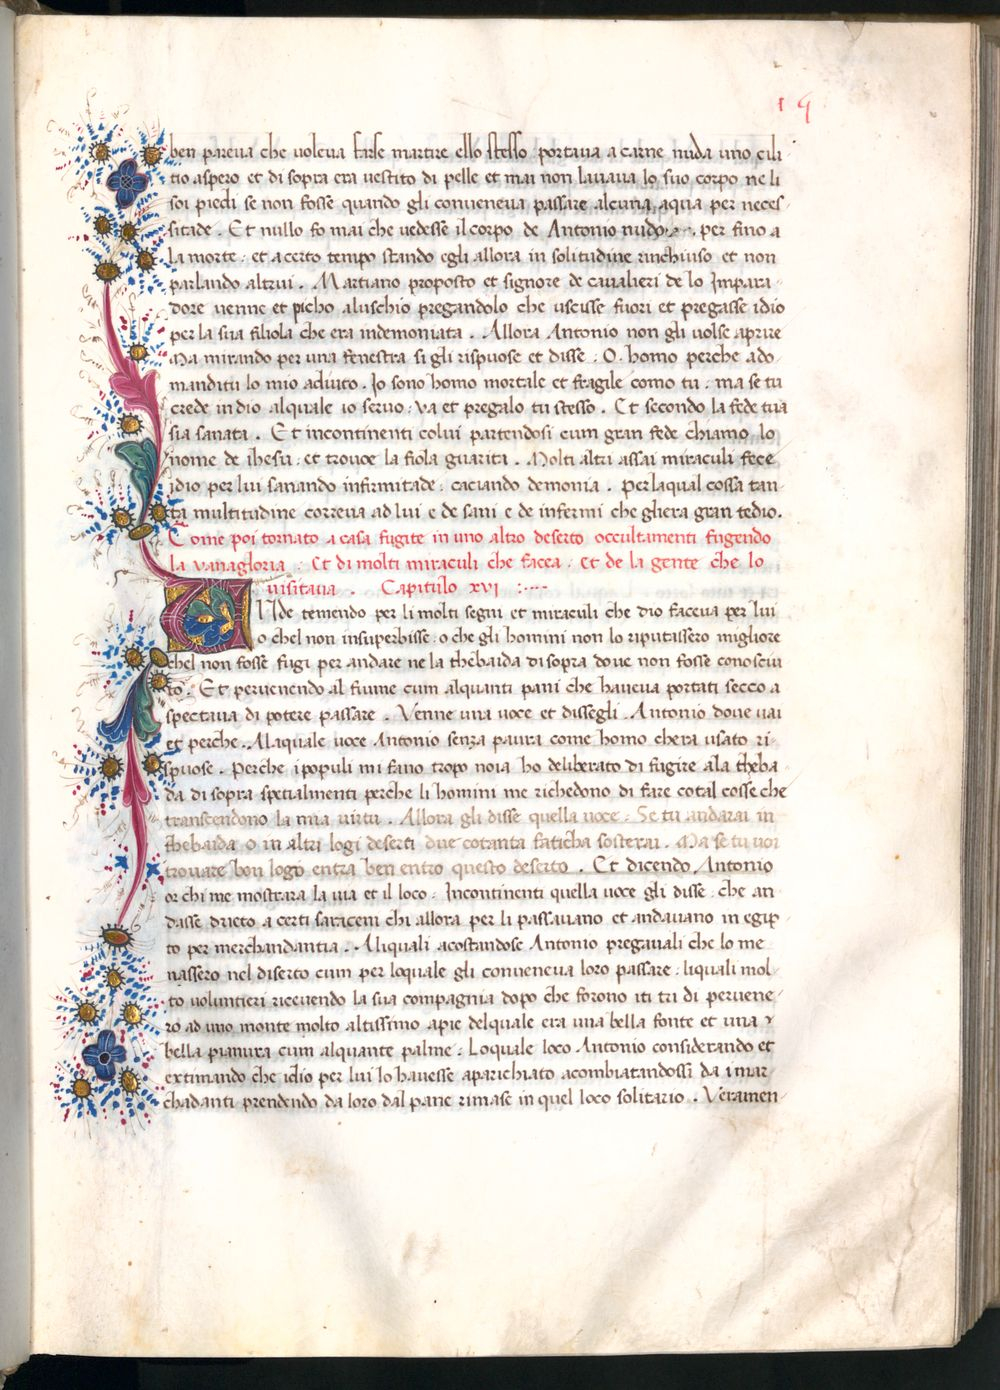 19
ben pareua che uoleua farse martire ello stesso portaua a carne nuda uno cili
tio aspero et di sopra era uestito di pelle et mai non lauaua lo suo corpo ne li
soi piedi se non fosse quando gli conueneua passare alcuna aqua per neces
sitade . Et nullo fo mai che uedesse il corpo de Antonio nudo per fino a
la morte : et a certo tempo stando egli allora in solitudine rinchiuso et non
parlando altrui . Martiano proposto et signore de caualieri de lo Impara
dore uenne et picho aluschio pregandolo che uscisse fuori et pregasse idio
per la sua filiola che era indemoniata . Allora Antonio non gli uolse aprire
Ma mirando per una fenestra si gli rispuose et disse : O homo perche ado
manditu lo mio adiuto . Io sono homo mortale et fragile como tu : ma se tu
crede in dio alquale io seruo : va et pregalo tu stesso . Et secondo la fede tua
sia sanata . Et incontinenti colui partendosi cum gran fede chiamo lo
nome de ihesu : et trouoe la fiola guarita . Molti altri assai miraculi fece
idio per lui sanando infirmitade : caciando demonia . Per laqual cossa tan
ta multitudine correua ad lui e de sani e de infermi che gliera gran tedio .
Come poi tornato a casa fugite in uno altro deserto occultamenti fugendo
la vanagloria : Et di molti miraculi che facea : et de la gente che lo
uisitaua . Capitulo xvi :
UNde temendo per li molti segni et miraculi che dio faceua per lui
o chel non insuperbisse : o che gli homini non lo riputassero migliore
chel non fosse fugi per andare ne la thebaida di sopra doue non fosse conosciu
to . Et peruenendo al fiume cum alquanti pani che haueua portati secco a
spectaua di potere passare . Venne una uoce et dissegli . Antonio doue uai
et perche . Alaquale uoce Antonio senza paura come homo chera usato ri
spuose . Perche i populi mi fano tropo noia ho deliberato di fugire ala theba
da di sopra spetialmenti perche li homini me richedono di fare cotal cosse che
transcendono la mia uirtu . Allora gli disse quella uoce : Se tu andarai in
thebaida o in altri logi deserti due cotanta faticha sosterai . Ma se tu uoi
trouare bon logo entra ben entro questo deserto . Et dicendo Antonio
or chi me mostrara la uia et il loco : Incontinenti quella uoce gli disse : che an
dasse drieto a certi saraceni chi allora per li passauano et andauano in egip
to per merchandantia . Aliquali acostandose Antonio pregauali che lo me
nassero nel diserto cum per loquale gli conueneua loro passare : liquali mol
to uoluntieri riceuendo la sua compagnia dopo che forono iti tri di peruene
ro ad uno monte molto altissimo apie delquale era una bella fonte et una
bella pianura cum alquante palme : Loquale loco Antonio considerando et
extimando che idio per lui lo hauesse aparichiato acombiatandossi da i mar
chadanti prendendo da loro dal pane rimase in quel loco solitario . Veramen